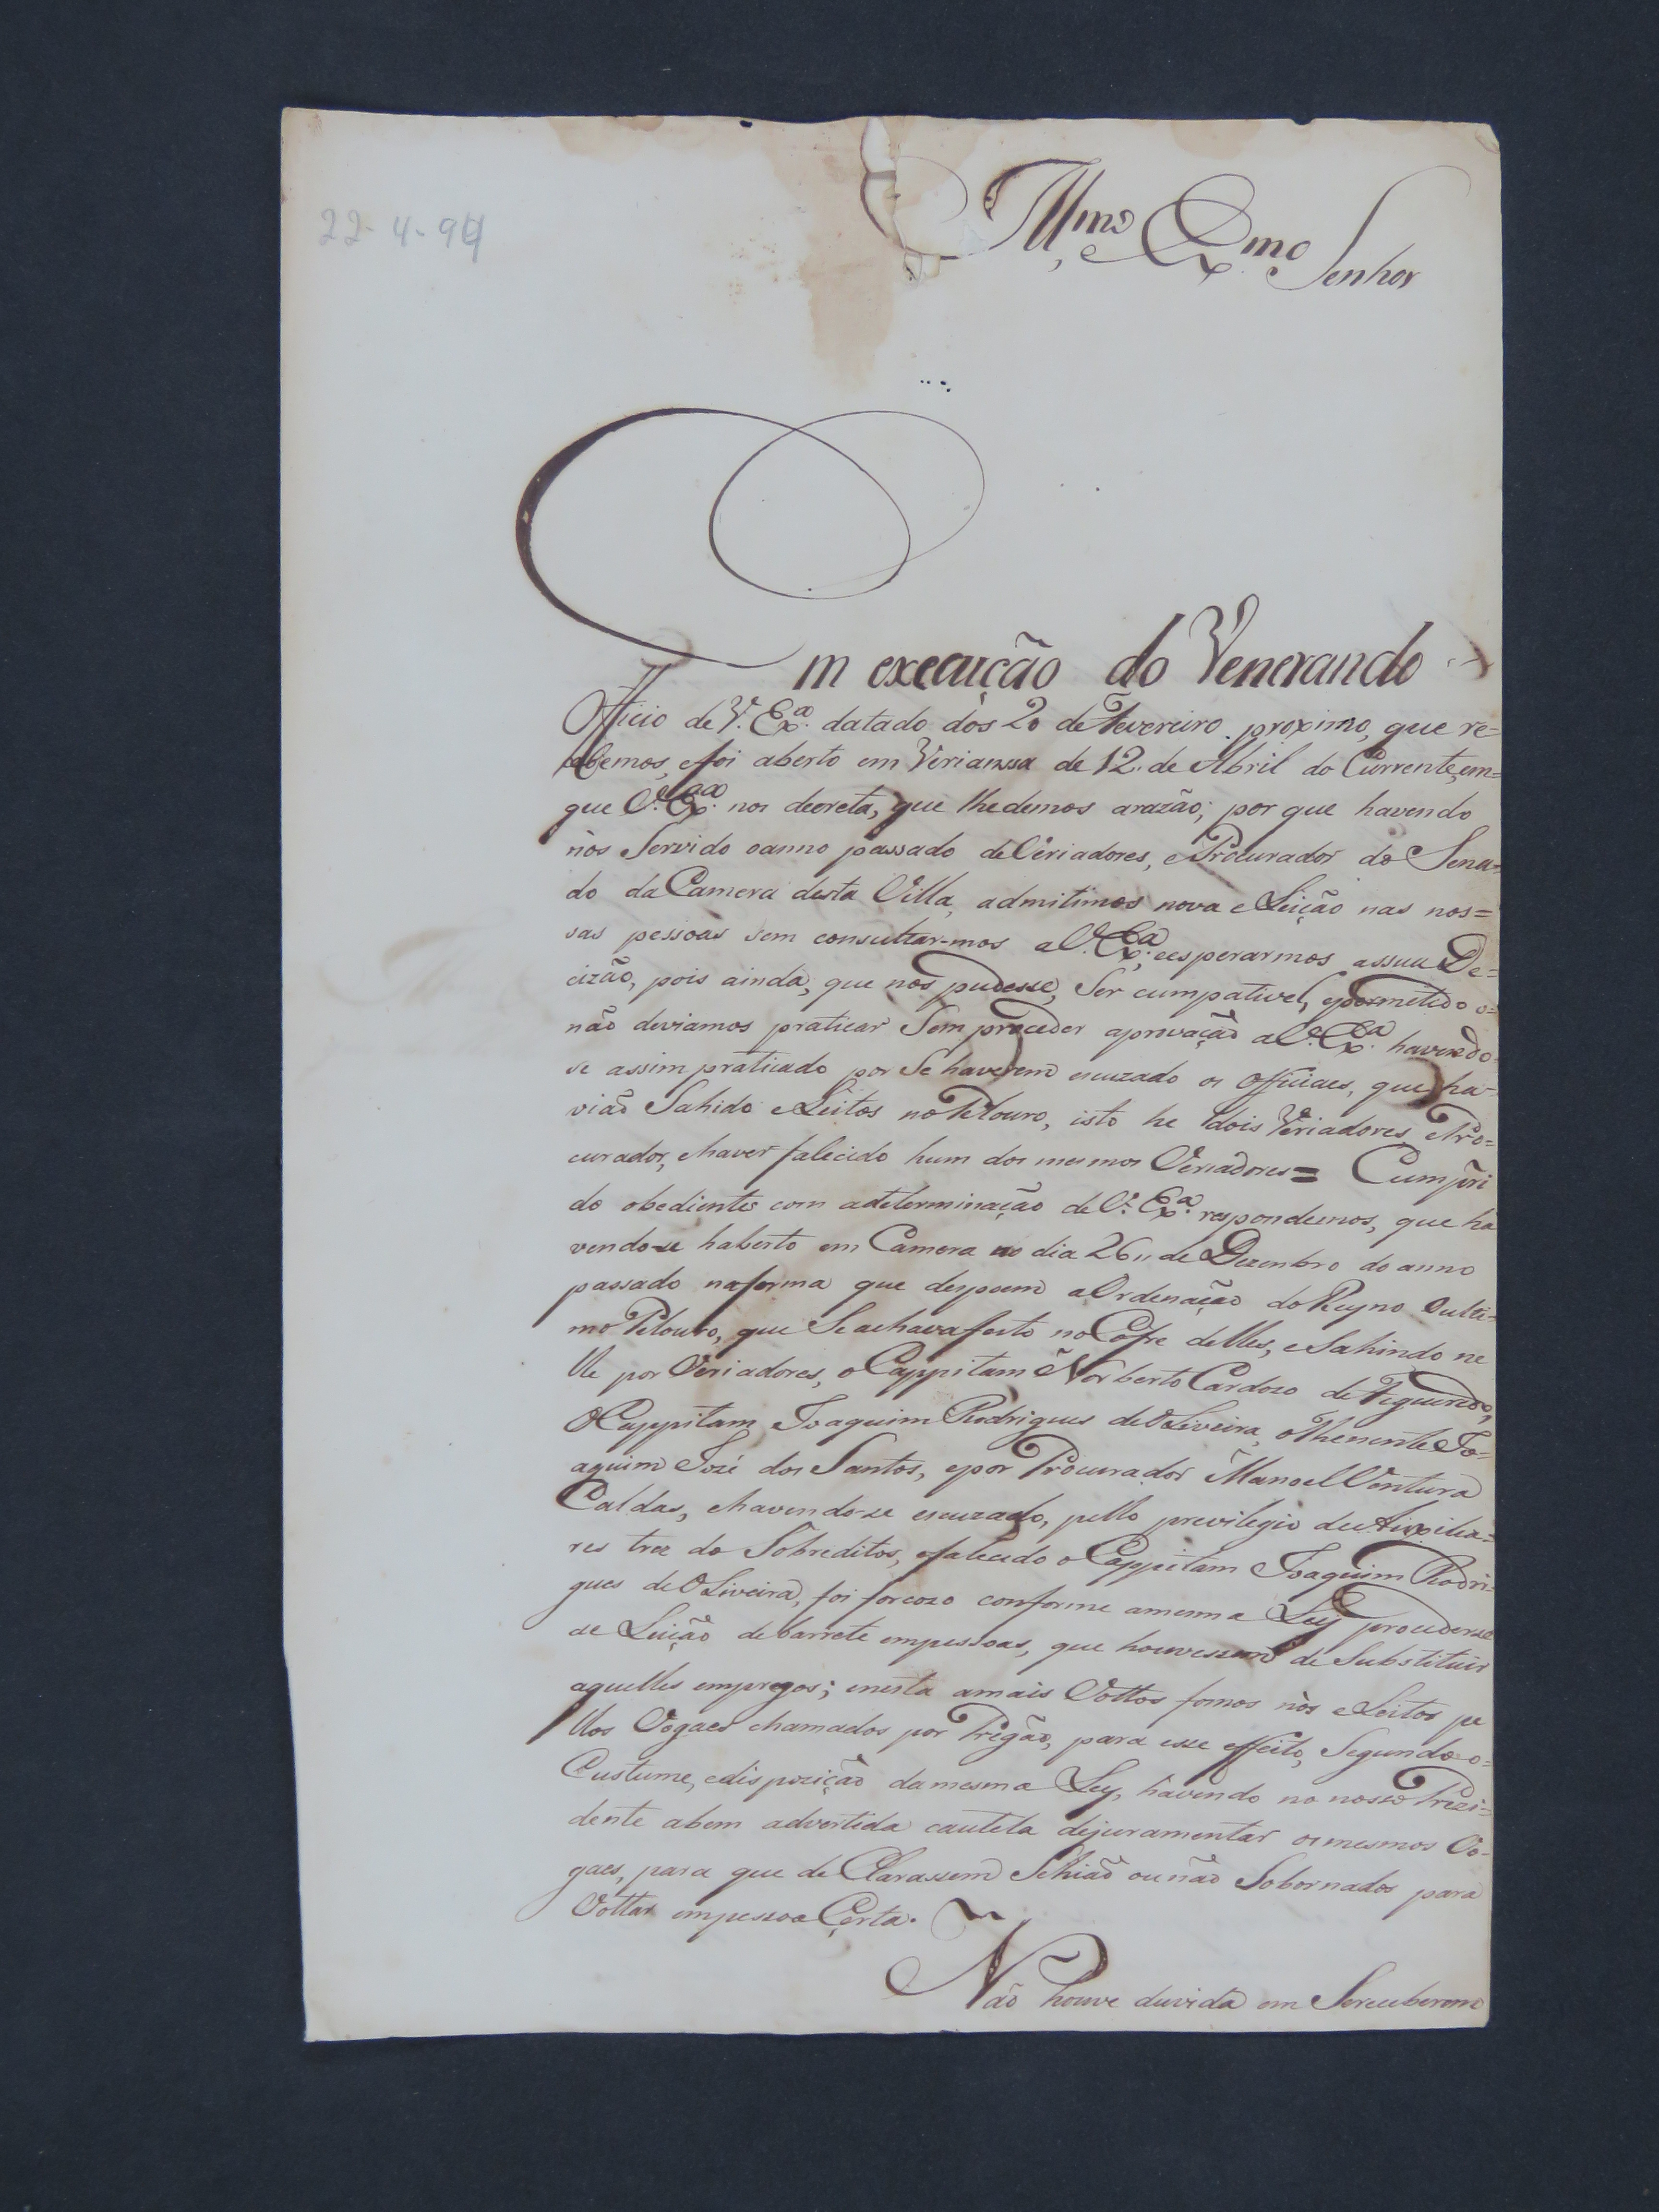 22-4-94
Illmo e Exmo Senhor
Em execução do Venerando
Officio de V. Exa. datado dòs 20 de Fevereiro proximo, que re=
cebemos, e foi aberto em Veriamssa de 12 de Abril do Currente, em=
que V. Exa. nos decreta, que lhe demos arazão; por que havendo
nòs Servido oanno passado de Veriadores, e Procurador do Sena=
do da Camera desta Villa, admitimos nova eLeição nas nos=
sas pessoas sem consultar-mos aV. Exa. eesperarmos assua De=
cizão, pois ainda, que nos pudesse, Ser cumpativel, epermetido o=
não deviamos praticar Sem proceder aprovação aV. Exa. havendo=
se assim praticado por Se haverem escuzado os Officiaes, que ha-
vião Sahido eLeitos no Pelouro, isto he dois Veriadores, ePro=
curador, ehaver falecido hum dos mesmos Veriadores= Cumpri
do obedientes com adeterminação de V. Exa. respondemos, que ha
vendo-se haberto em Camera no dia 26 de Dezembro do anno
passado naforma que despoem aOrdenação do Reyno Oulti-
mo Pelouro, que Seachavafeito no Cofre delles, e Sahindo ne
lle por Veriadores, o Cappitam Norberto Cardozo de Figueredo,
O Cappitam Joaquim Rodrigues de OLiveira, oThenente Jo-
aquim Jozé dos Santos, epor Procurador Manoel Ventura
Caldas, ehavendo-se escuzado, pello previlegio de Auxilia=
res trez do Sobreditos, efalecido o Cappitam Joaquim Rodri-
gues de OLiveira, foi forcozo conforme amesma Ley proceder-se
ae Leição debarrete empessoas, que houvessem de Substituir
aquelles empregos; enesta amais Vottos fomos nòs eLeitos pe
llos Vogaes chamados por Pregão, para esse effeito, Segundo o=
Custume, edispozição damesma Ley, havendo no nosso Prezi=
dente abem advertida cautela dejuramentar osmesmos Vo-
gaes, para que deClarassem Sehião ounão Sobornados para
Vottar empessoa Certa.
Não houve duvida em Sereceberem